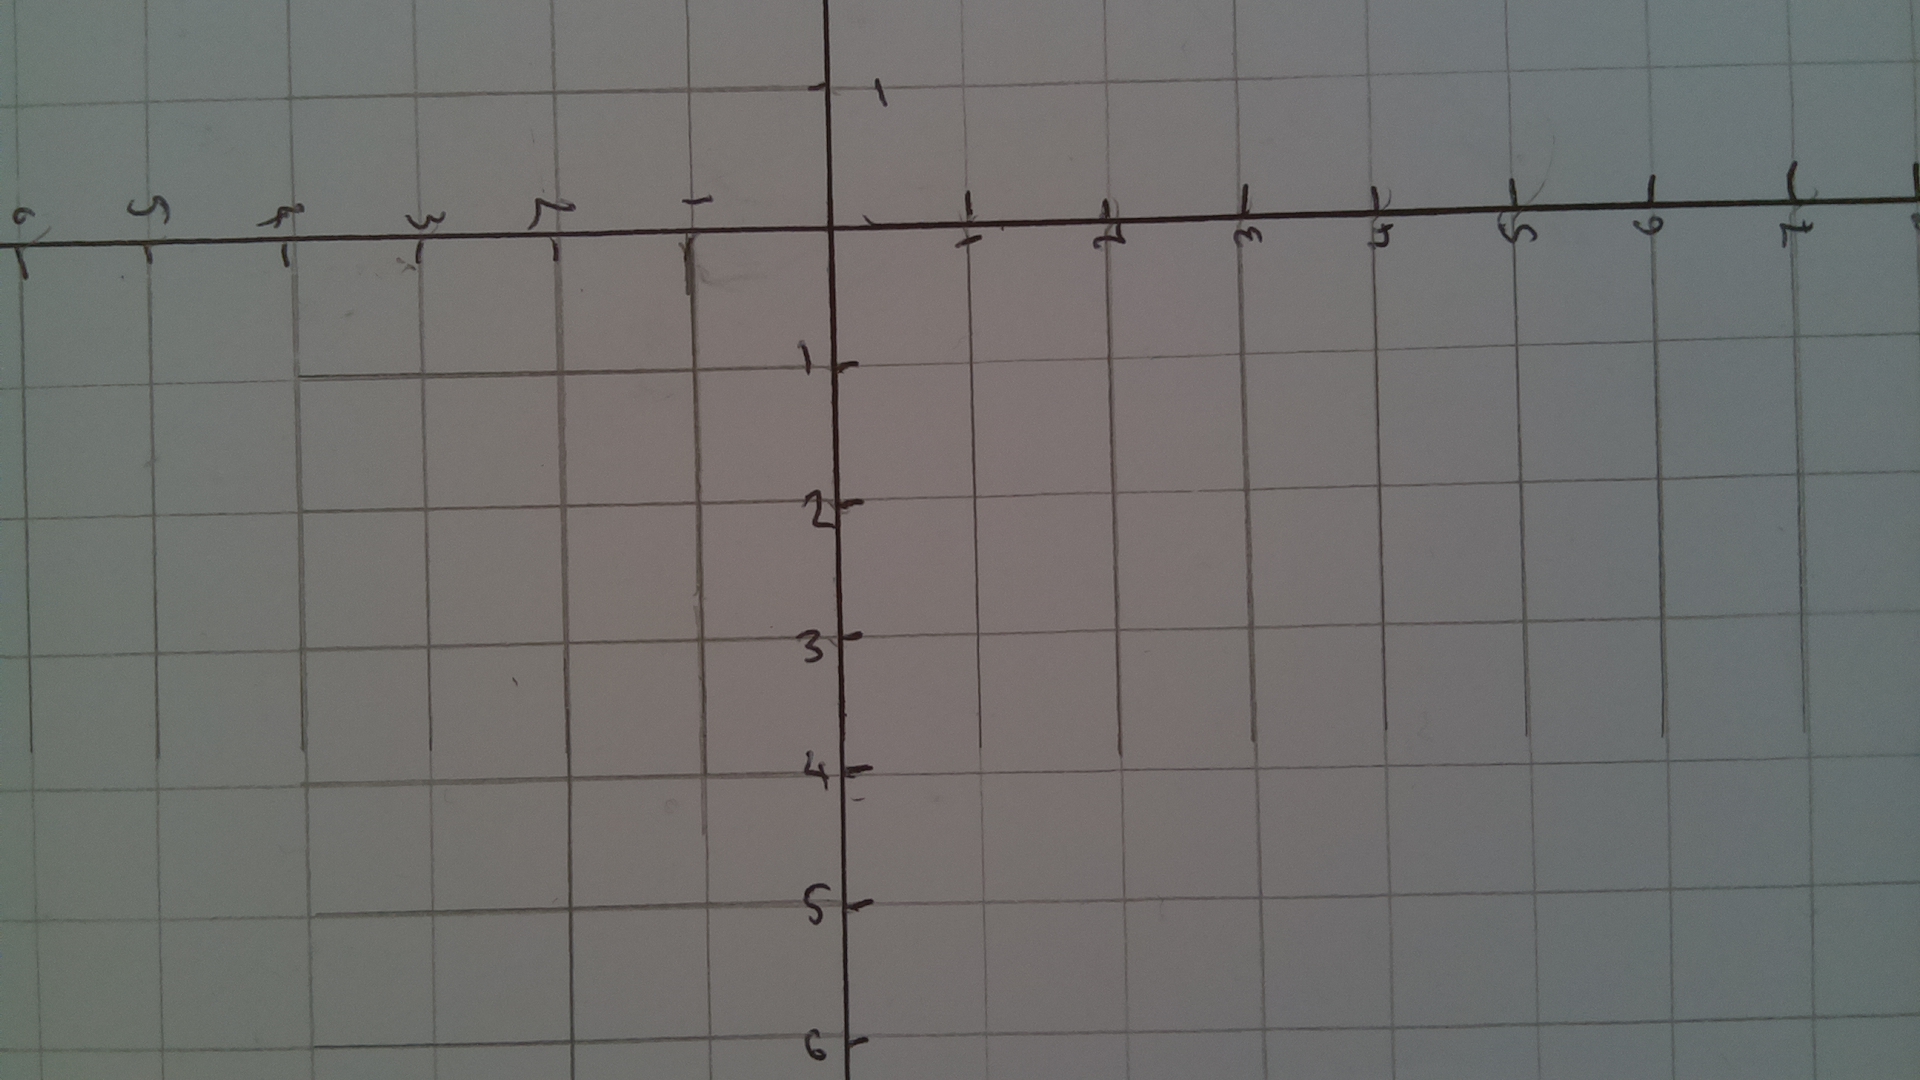 1
6 5 4 3 2 1
1 2 3 4 5 6 7
1
2
3
4
5
6